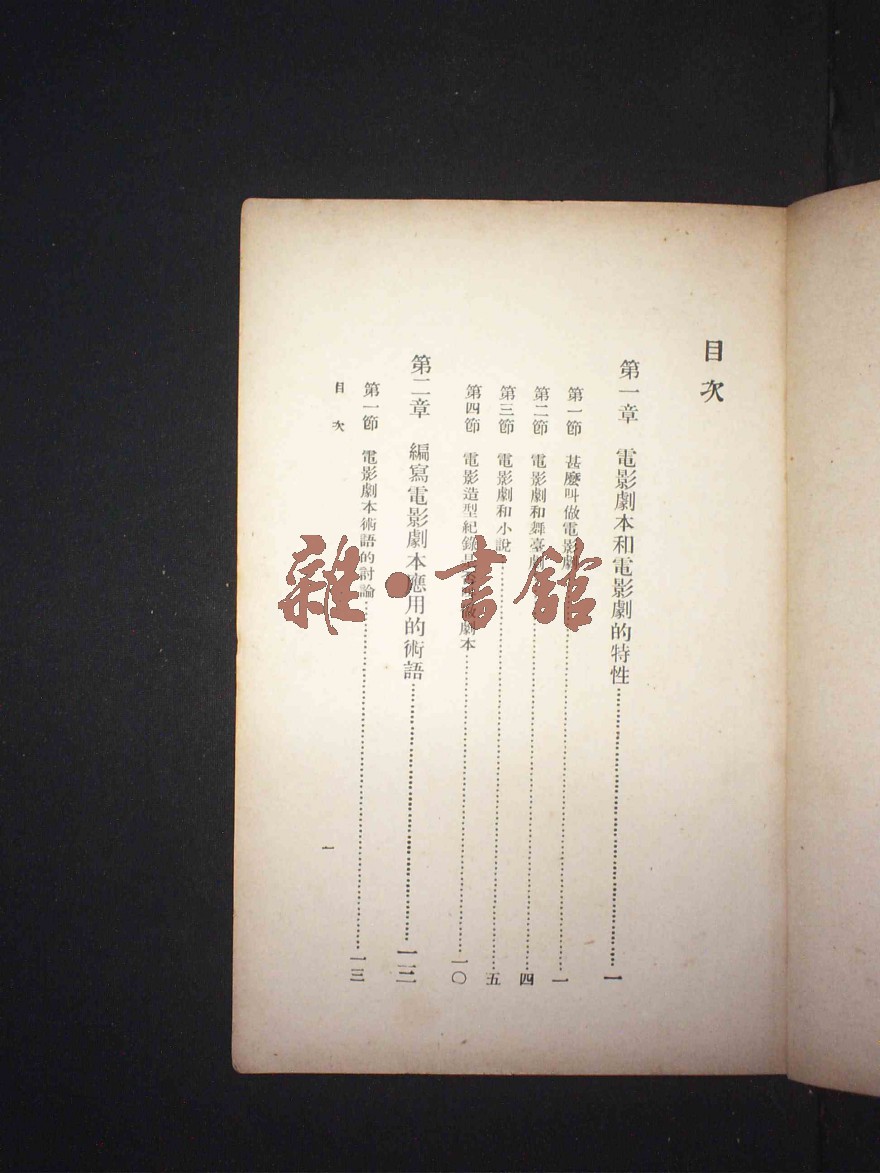 目次
第一章 電影劇本和電影劇的特性……一
第一節 甚麼叫做電影劇……一
第二節 電影劇和舞臺劇……四
第三節 電影劇和小說……五
第四節 電影造型紀錄 劇本……一〇
第二章 編寫電影劇本應用的術語……一三
第一節 電影劇本術語的討論……一三
目次
一
雜·書館